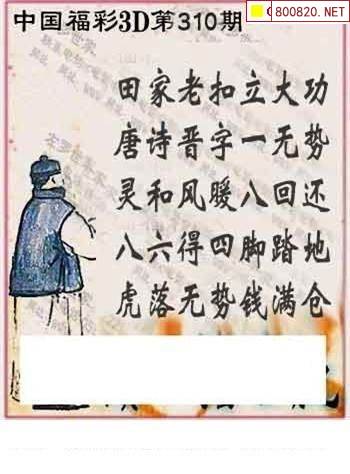 中国福彩3D第310期
800820.NET
田家老扣立大功
唐诗晋字一无势
灵和风暖八回还
八六得四脚踏地
虎落无势钱满仓